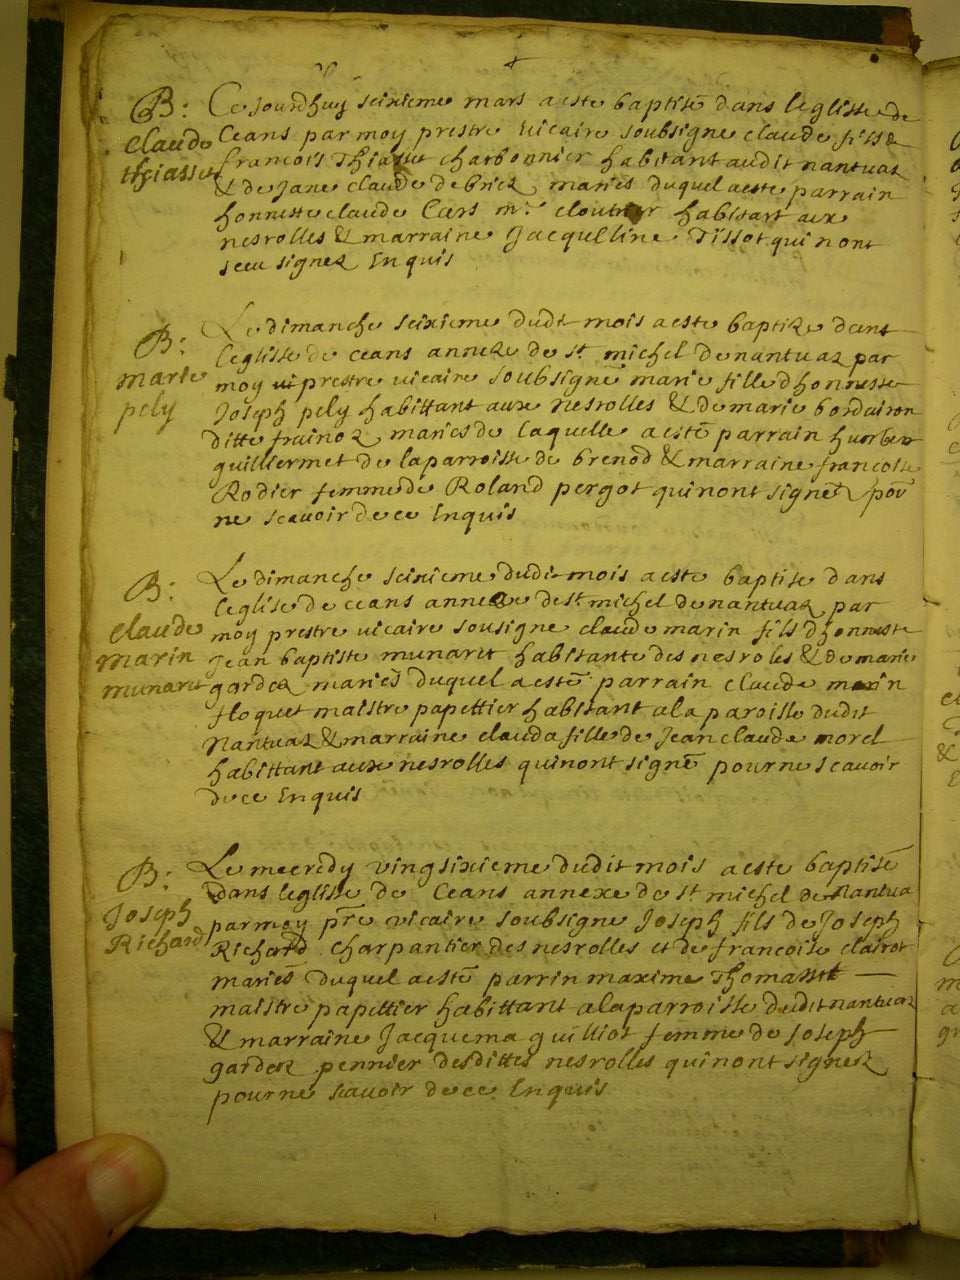 B:
claude
thiassut
Ce jourdhuy seixieme mars a este baptisé dans leglisse de
Ceans par moy prestre vicaire soubsigne claude fils de
francois Thiassut charbonnier habitant audit nantuaz
& de Jane claude debriez mariés duquel a este parrain
honneste claude Cars mre cloutrier habitant aux
nesrolles & marraine Jacquelline Tissot qui nont
sceu signez Enquis
B:
marie
pely
Le dimanche seixieme dudit mois a este baptize dans
leglisse de ceans annexe de st michel de nantuaz par
moy prestre vicaire soubsigné marie fille dhonneste
Joseph pely habittant aux nesrolles & de marie bordairon
ditte frainoz mariés de laquelle a esté parrain humber
guilliermet de la parroisse de brenod & marraine francoise
Rodier femme de Roland pergot qui nont signé pour
ne scavoir de ce Enquis
B:
claude
marin
munarit
Le dimanche seixieme dudit mois a este baptise dans
leglise de ceans annexe de st michel de nantuaz par
moy prestre vicaire sousigne claude marin fils dhonneste
Jean baptiste munarit habitante des nesroles & de marie
gardez mariés duquel a esté parrain claude marin
floquet maistre papettier habitant a la paroisse dudit
Nantuaz & marraine clauda fille de Jean claude morel
habittant aux nesrolles qui nont signé pour ne scavoir
de ce Enquis
B:
Joseph
Richard
Le meecredy vingsixieme dudit mois a este baptisé
dans leglisse de Ceans annexe de st michel de Nantua
par moy pre vicaire soubsigne Joseph fils de Joseph
Richard charpantier des nesrolles et de francoise clairot
mariés duquel a esté parrin maxime Thomasset
maistre papettier habittant a la parroisse dudit nantuaz
& marraine Jacquema quilliot femme de Joseph
gardez pennier desdittes nesrolles qui nont signez
pour ne scavoir de ce Enquis